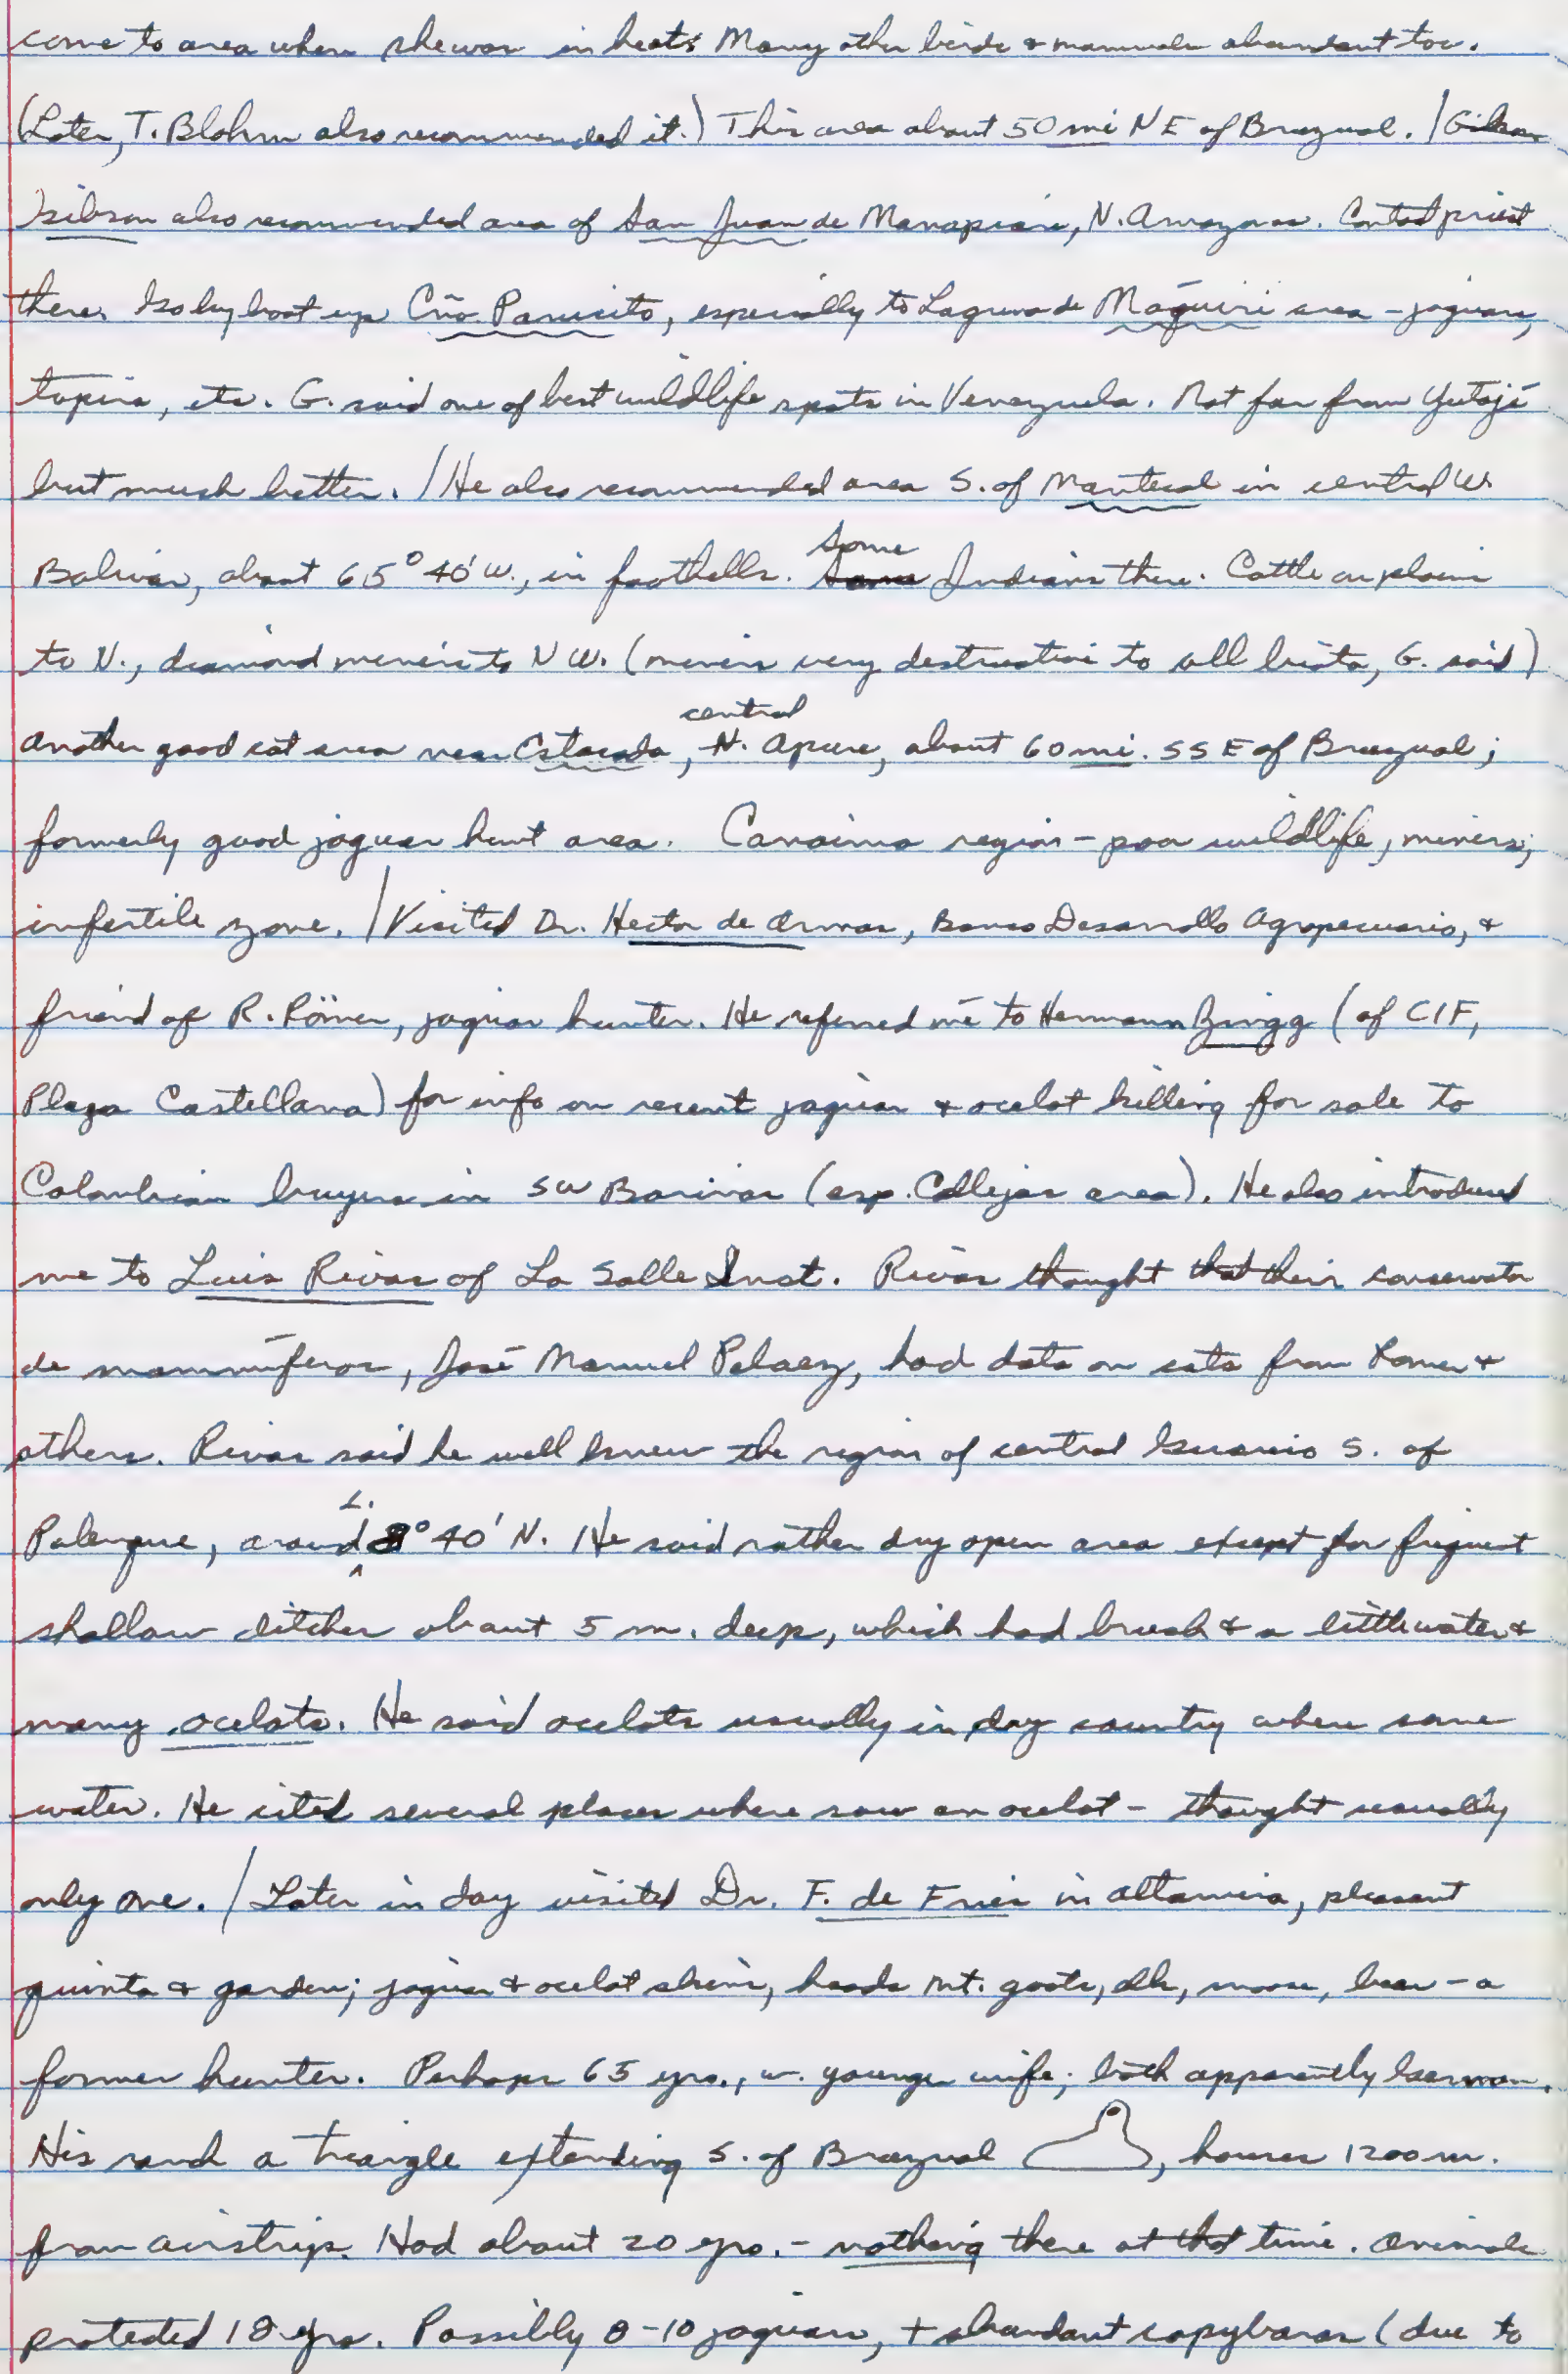 come to area when she was in heat. Many other birds & mammals abundant too.
(Later, T. Blohm also recommended it.) This area about 50 mi NE of Bruzual. / Gibson
Gibson also recommended area of San Juan de Manapiare, N. Amazonas. Contact priest
there. Go by boat up Cño Parucito, especially to Laguna de Maquiri area - jaguars,
tapirs, etc. G. said one of best wildlife spots in Venezuela. Not far from Yutajé
but much better. / He also recommended area S. of Manteco in central W.
Bolivar, about 65° 40' W., in foothills. Some Indians there. Cattle on plains
to N., diamond miners to NW. (miners very destructive to all biota, G. said)
Another good cat area near Estacada, central Apure, about 60 mi. SSE of Bruzual;
formerly good jaguar hunt area. Canaima region - poor wildlife, miners;
infertile zone. / Visited Dr. Hector de Armas, Banco Desarrollo Agropecuario, &
friend of R. Römer, jaguar hunter. He referred me to Hermann Zingg (of CIF,
Plaza Castellana) for info on recent jaguar & ocelot killing for sale to
Colombian buyers in SW Barinas (esp. Callejas area). He also introduced
me to Luis Rivas of La Salle Inst. Rivas thought that their conservator
de mammíferos, José Manuel Pelaez, had data on cats from Romer &
others. Rivas said he well knew the region of central Guarico S. of
Palenque, around L. 8° 40' N. He said rather dry open area except for frequent
shallow ditches about 5 m. deep, which had brush & a little water &
many ocelots. He said ocelots usually in dry country where some
water. He cited several places where saw an ocelot - thought usually
only one. / Later in day visited Dr. F. de Fries in Altamira, pleasant
quinta & garden; jaguar & ocelot skins, heads mt. goats, elk, moose, bear - a
former hunter. Perhaps 65 yrs., w. younger wife; both apparently German.
His ranch a triangle extending S. of Bruzual, houses 1200 m.
from airstrip. Had about 20 yrs. - nothing there at that time. Animals
protected 18 yrs. Possibly 8-10 jaguars, + abundant capybaras (due to